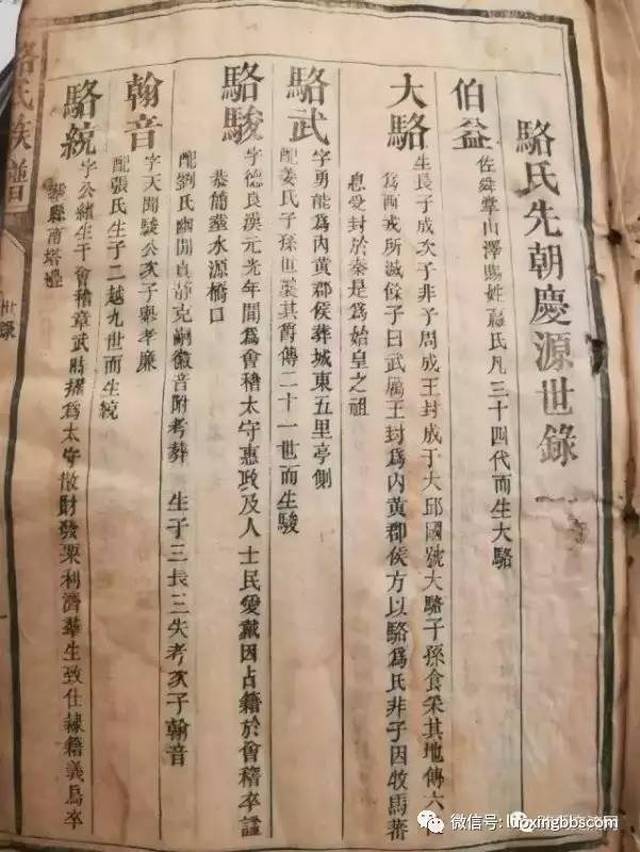 駱氏先朝慶源世錄
伯益
佐舜掌山澤賜姓嬴氏凡三十四代而生大駱
大駱
生長子成次子非子周成王封成于大邱國號大駱子孫食采其地傳六
為西戎所滅餘子曰武厲王封為內黃郡侯方以駱為氏非子因牧馬蕃
息受封於秦是為始皇之祖
駱武
字勇能為內黃郡侯葬城東五里亭側
配姜氏子孫世襲其爵傳二十一世而生駿
駱駿
字德良漢元光年間為會稽太守惠政及人士民愛戴因占籍於會稽卒諡
恭葡塟水源橋口
配劉氏幽閒貞靜克嗣徽音附考葬 生子三長三失考次子翰音
翰音
字天聞駿公次子舉孝廉
配張氏生子二越九世而生統
駱統
字公緒生于會稽章武時擢為太守散財發粟利濟羣生致仕隸籍義烏卒
葬縣南塔
駱氏族譜
世錄
微信号: luoxingbbscom